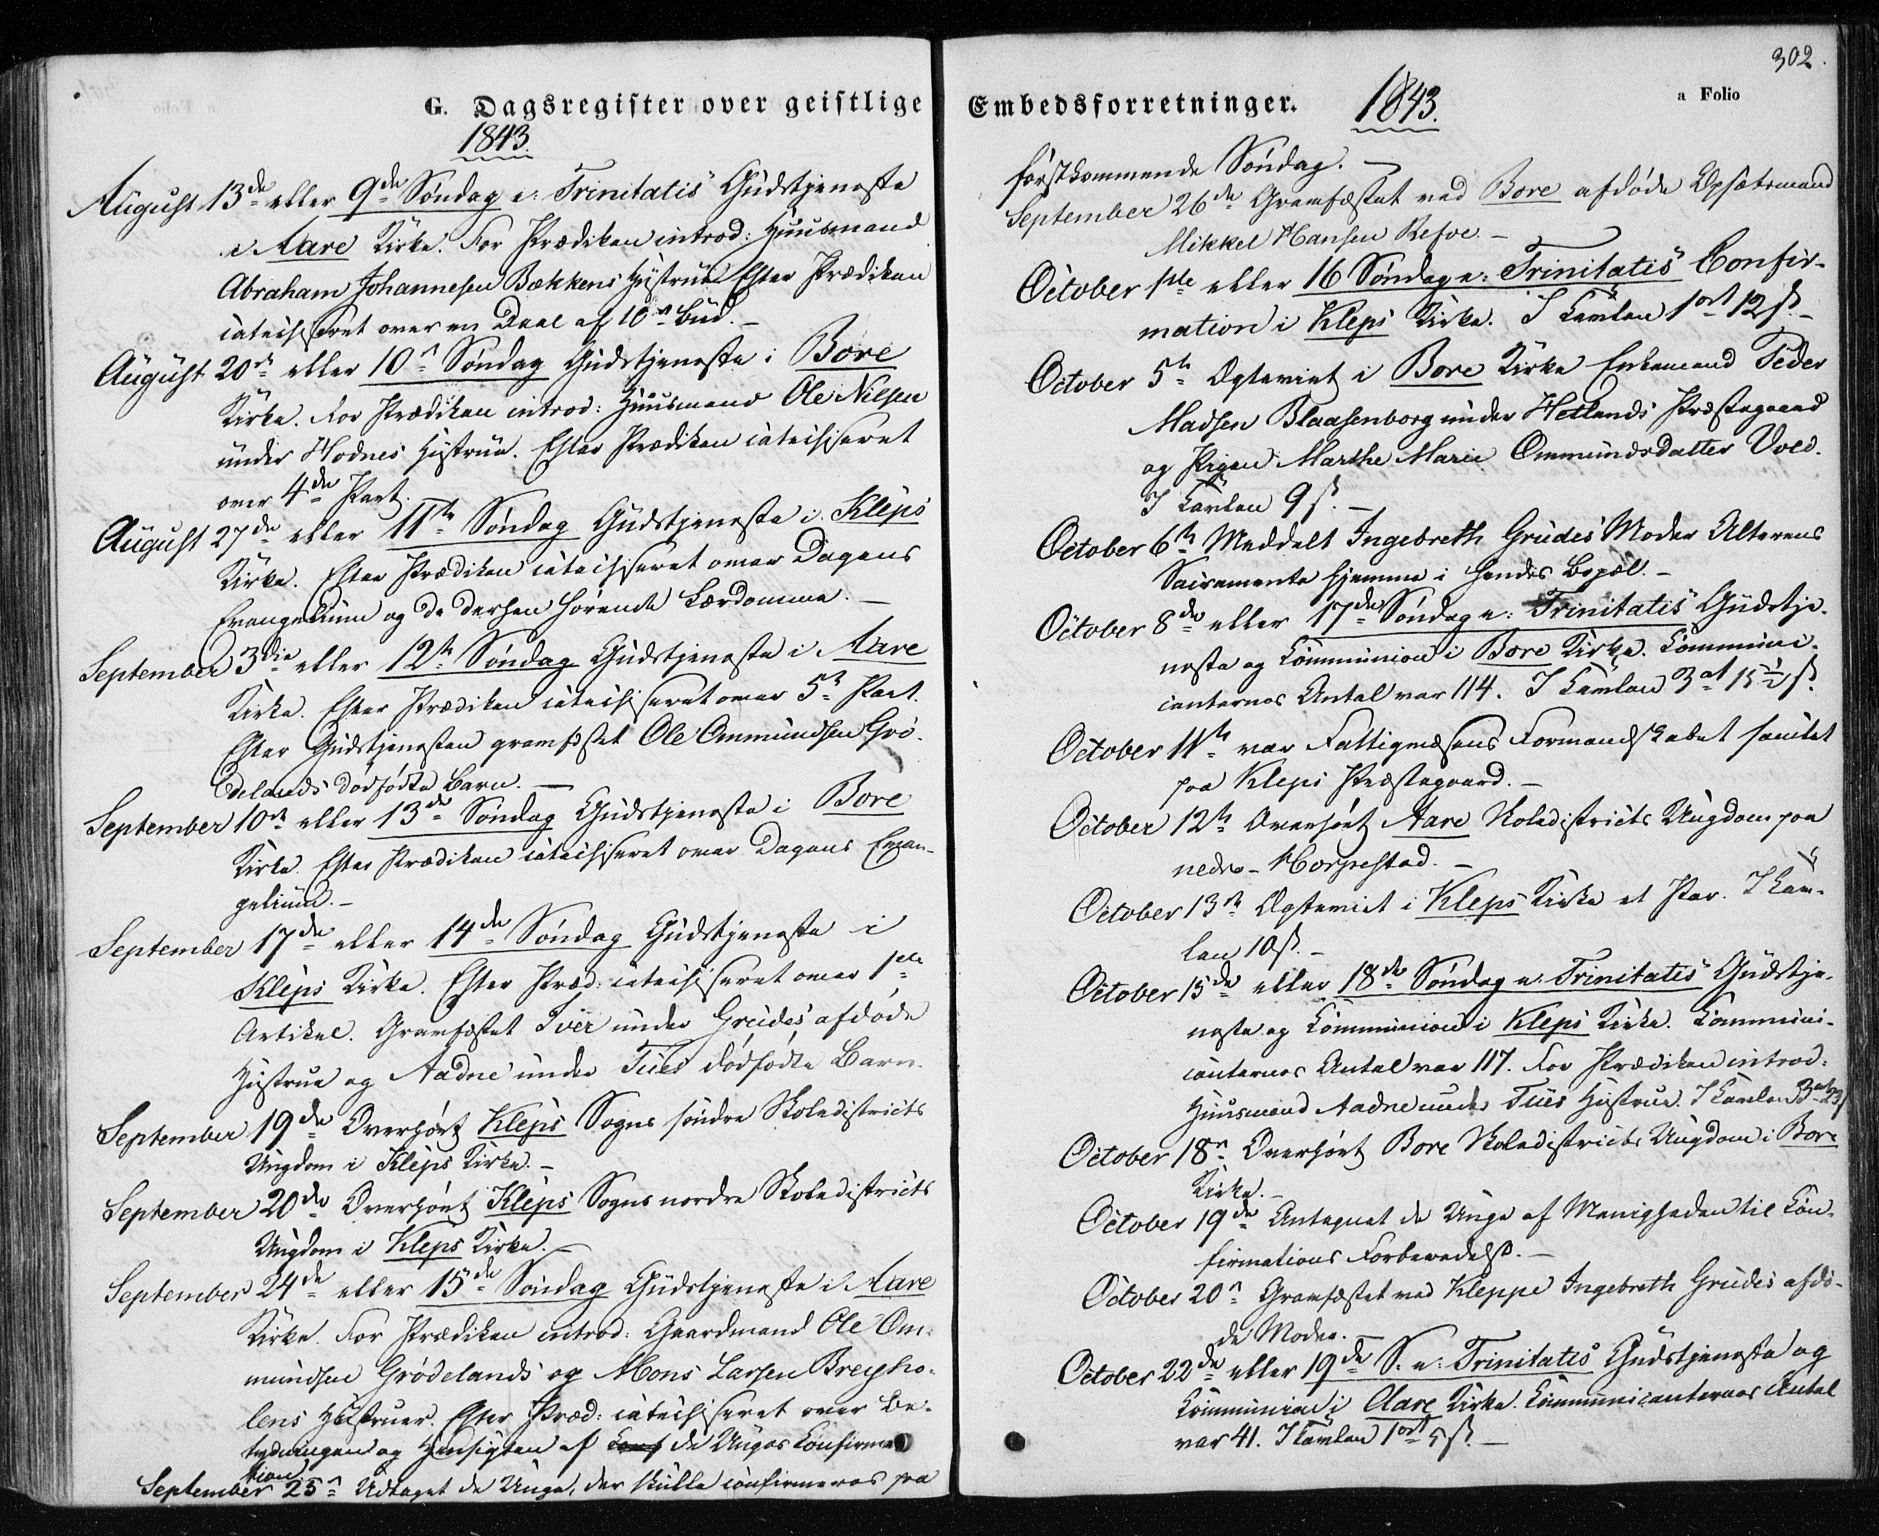 G. Dagsregister over geistlige
1843.
August 13de eller 9de Søndag e: Trinitatis Gudstjeneste
i Aare Kirke. For Prædiken introd: Huusmand
Abraham Johannesen Bækkens Hustrue Efter Prædiken
catechiseret over en Deel af 10de Bud. —
August 20de eller 10de Søndag Gudstjeneste i Bore
Kirke. For Prædiken introd: Huusmand Ole Nilsen
under Hodnes Hustrue. Efter Prædiken catechiseret
over 4de Part.
August 27de eller 11te Søndag Gudstjeneste i Kleps
Kirke. Efter Prædiken catechiseret over Dagens
Evangelium og de derhen hørende Lærdomme. —
September 3die eller 12te Søndag Gudstjeneste i Aare
Kirke. Efter Prædiken catechiseret over 5te Part.
Efter Gudstjenesten gravfæstet Ole Ommundsen Grø-
delands dødfødte Barn. —
September 10de eller 13de Søndag Gudstjeneste i Bore
Kirke. Efter Prædiken catechiseret over Dagens Evan-
gelium. —
September 17de eller 14de Søndag Gudstjeneste i
Kleps Kirke. Efter Præd: catechiseret over 1ste
Artikel. Gravfæstet Iver under Grudes afdøde
Hustrue og Aadne under Tues dødfødte Barn.
September 19de Overhørt Kleps Sogns søndre Skoledistricts
Ungdom i Kleps Kirke. —
September 20de Overhørt Kleps Sogns nordre Skoledistricts
Ungdom i Kleps Kirke. —
September 24de eller 15de Søndag Gudstjeneste i Aare
Kirke. For Prædiken introd: Gaardmand Ole Om-
mundsen Grødelands og Mons Larsen Breyho-
lens Hustruer. Efter Præd: catechiseret over Be-
tydningen og Hensigten af Conf de Unges Confirma
tion.
September 25de Udtaget de Unge, der skulle confirmeres paa
302.
Embedsforretninger.
1843.
a Folio
førstkommende Søndag. —
September 26de Gravfæstet ved Bore afdøde Opsætsmand
Mikkel Hansen Refve. —
October 1ste eller 16 Søndag e: Trinitatis Confir-
mation i Kleps Kirke. I Tavlen 1ort 12ß. —
October 5te Ægteviet i Bore Kirke Enkemand Peder
Madsen Blaasenborg under Hetlands Præstegaard
og Pigen Marthe Marie Ommundsdatter Voll.
I Tavlen 9ß. —
October 6te Meddelt Ingebreth Grudes Moder Alterens
Sacramente hjemme i hendes Bopæl. —
October 8de eller 17de Søndag e: Trinitatis Gudstje-
neste og Communion i Bore Kirke. Communi-
canternes Antal var 114. I Tavlen 3ort 15½ß.
October 11te var Fattigvæsens Formandskabet samlet
paa Kleps Præstegaard. —
October 12te Overhørt Aare Skoledistricts Ungdom paa
nedre-Horpestad. —
October 13de Ægteviet i Kleps Kirke et Par. I Tav-
len 10ß. —
October 15de eller 18de Søndag e: Trinitatis Gudstje-
neste og Communion i Kleps Kirke. Communi-
canternes Antal var 117. For Prædiken introd:
Huusmand Aadne under Tues Hustrue. I Tavlen 3ort 23ß
October 18de Overhørt Bore Skoledistricts Ungdom i Bore
Kirke. —
October 19de Antegnet de Unge af Menigheden til Con-
firmations Forberedelse. —
October 20de Gravfæstet ved Kleppe Ingebreth Grudes afdø-
de Moder. —
October 22de eller 19de S. e: Trinitatis Gudstjeneste og
Communion i Aare Kirke. Communicanternes Antal
var 41. I Tavlen 1ort 5ß. —